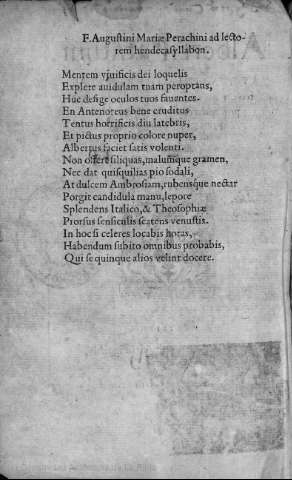 F. Augustini Mariæ Perachini ad lecto-
rem hendecasyllabon.
Mentem vjuificis dei loquelis
Explere auidulam tuam peroptans,
Huc defige oculos tuos fauentes.
En Antenoreus bene eruditus
Tentus horrificis diu latebris,
Et pictus proprio colore nuper,
Albertus faciet satis volenti.
Non offert siliquas, malumq́ue gramen,
Nec dat quisquilias pio sodali,
At dulcem Ambrosiam, rubensq́ue nectar
Porgit candidula manu, lepore
Splendens Italico, & Theosophiæ
Prorsus sensiculis scatens venustis.
In hoc si celeres locabis horas,
Habendum subito omnibus probabis,
Qui se quinque alios velint docere.